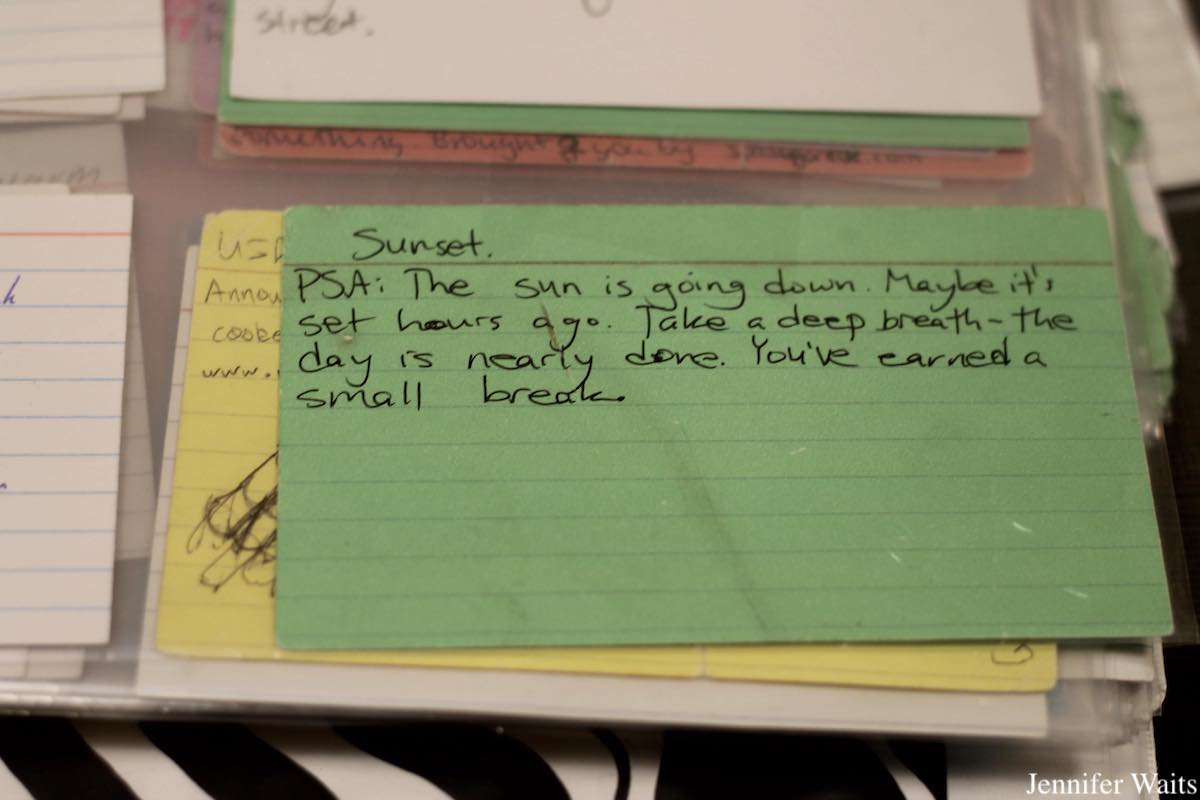 street.
Something Brought to you by
Sunset.
PSA: The sun is going down. Maybe it's
set hours ago. Take a deep breath - the
day is nearly done. You've earned a
small break.
Annou
cooke
www.
Jennifer Waits